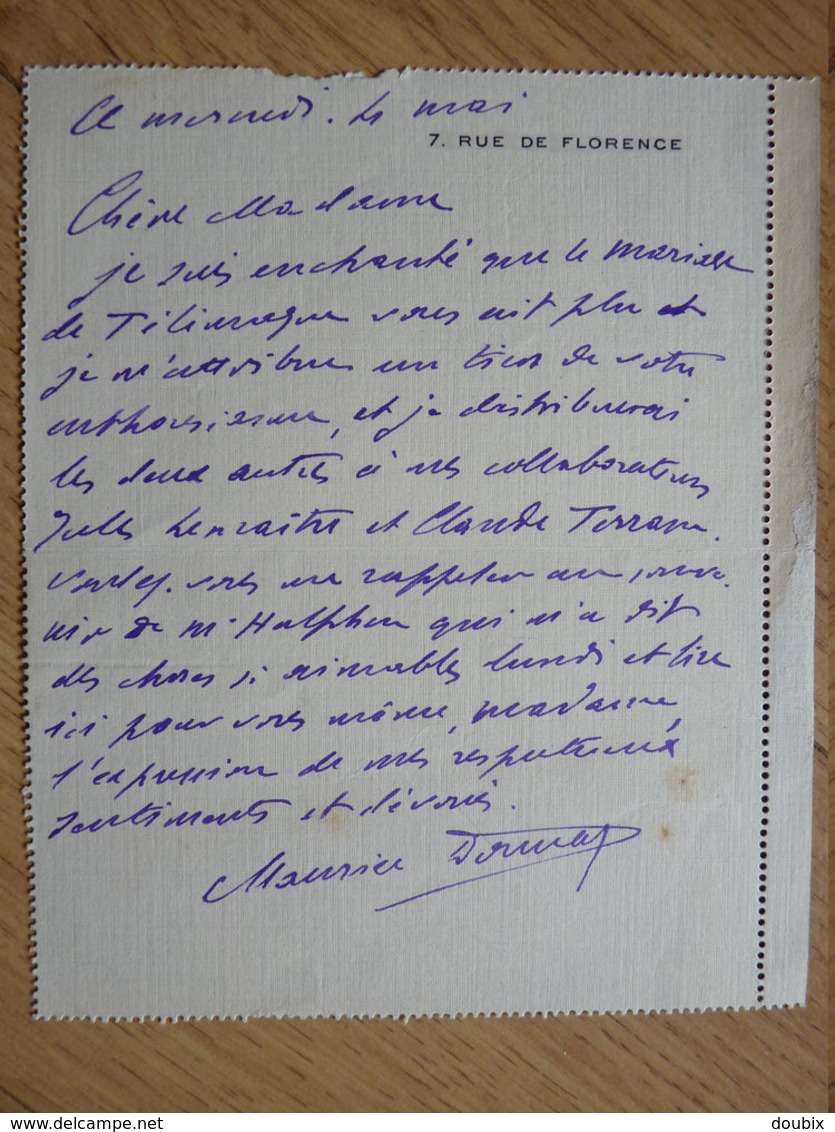 Ce mercredi. 4 mai
7. RUE DE FLORENCE
Chère Madame
je suis enchanté que le mariage
de Télémaque vous ait plu et
je m'attribue un tiers de votre
enthousiasme, et je distribuerai
les deux autres à mes collaborateurs
Jules Lemaître et Claude Terrasse.
Voulez-vous me rappeler au souve-
nir de Mr Halphen qui m'a dit
des choses si aimables lundi et lire
ici pour vous même, madame,
l'expression de mes respectueux
sentiments et dévoués.
Maurice Donnay
delcampe.net
doubix